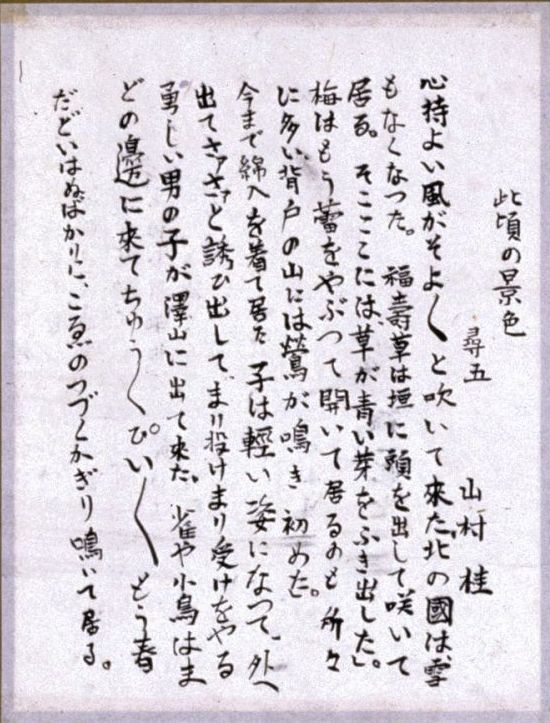 此頃の景色
尋五
山村桂
心持よい風がそよ〱と吹いて來た、北の國は雪
もなくなつた。福壽草は垣に頭を出して咲いて
居る。そここゝには草が青い芽をふき出した。
梅はもう蕾をやぶつて開いて居るのも所々
に多い、背戸の山には鶯が鳴き初めた。
今まで綿入を着て居た子は輕い姿になつて、外へ
出てさァさァと誘ひ出して、まり投げまり受けをやる
勇しい男の子が澤山に出て來た、雀や小鳥はま
どの邊に來てちゆう〱ぴい〱もう春
だどいはぬばかりに、こゑのつづくかぎり鳴いて居る。